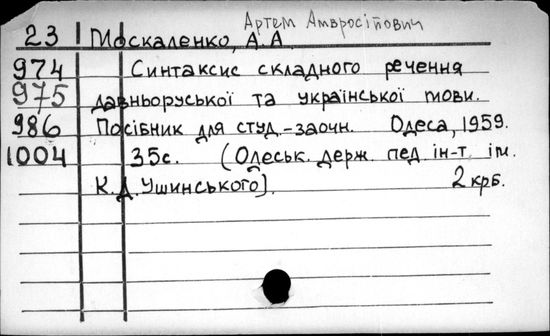 Артем Амвросійович
23 Москаленко, А.А.
974 Синтаксис складного речення
975 давньоруської та української мови.
986 Посібник для студ.-заочн. Одеса, 1959.
1004 35с. (Одеськ. держ. пед. ін-т ім.
К.Д. Ушинського). 2 крб.